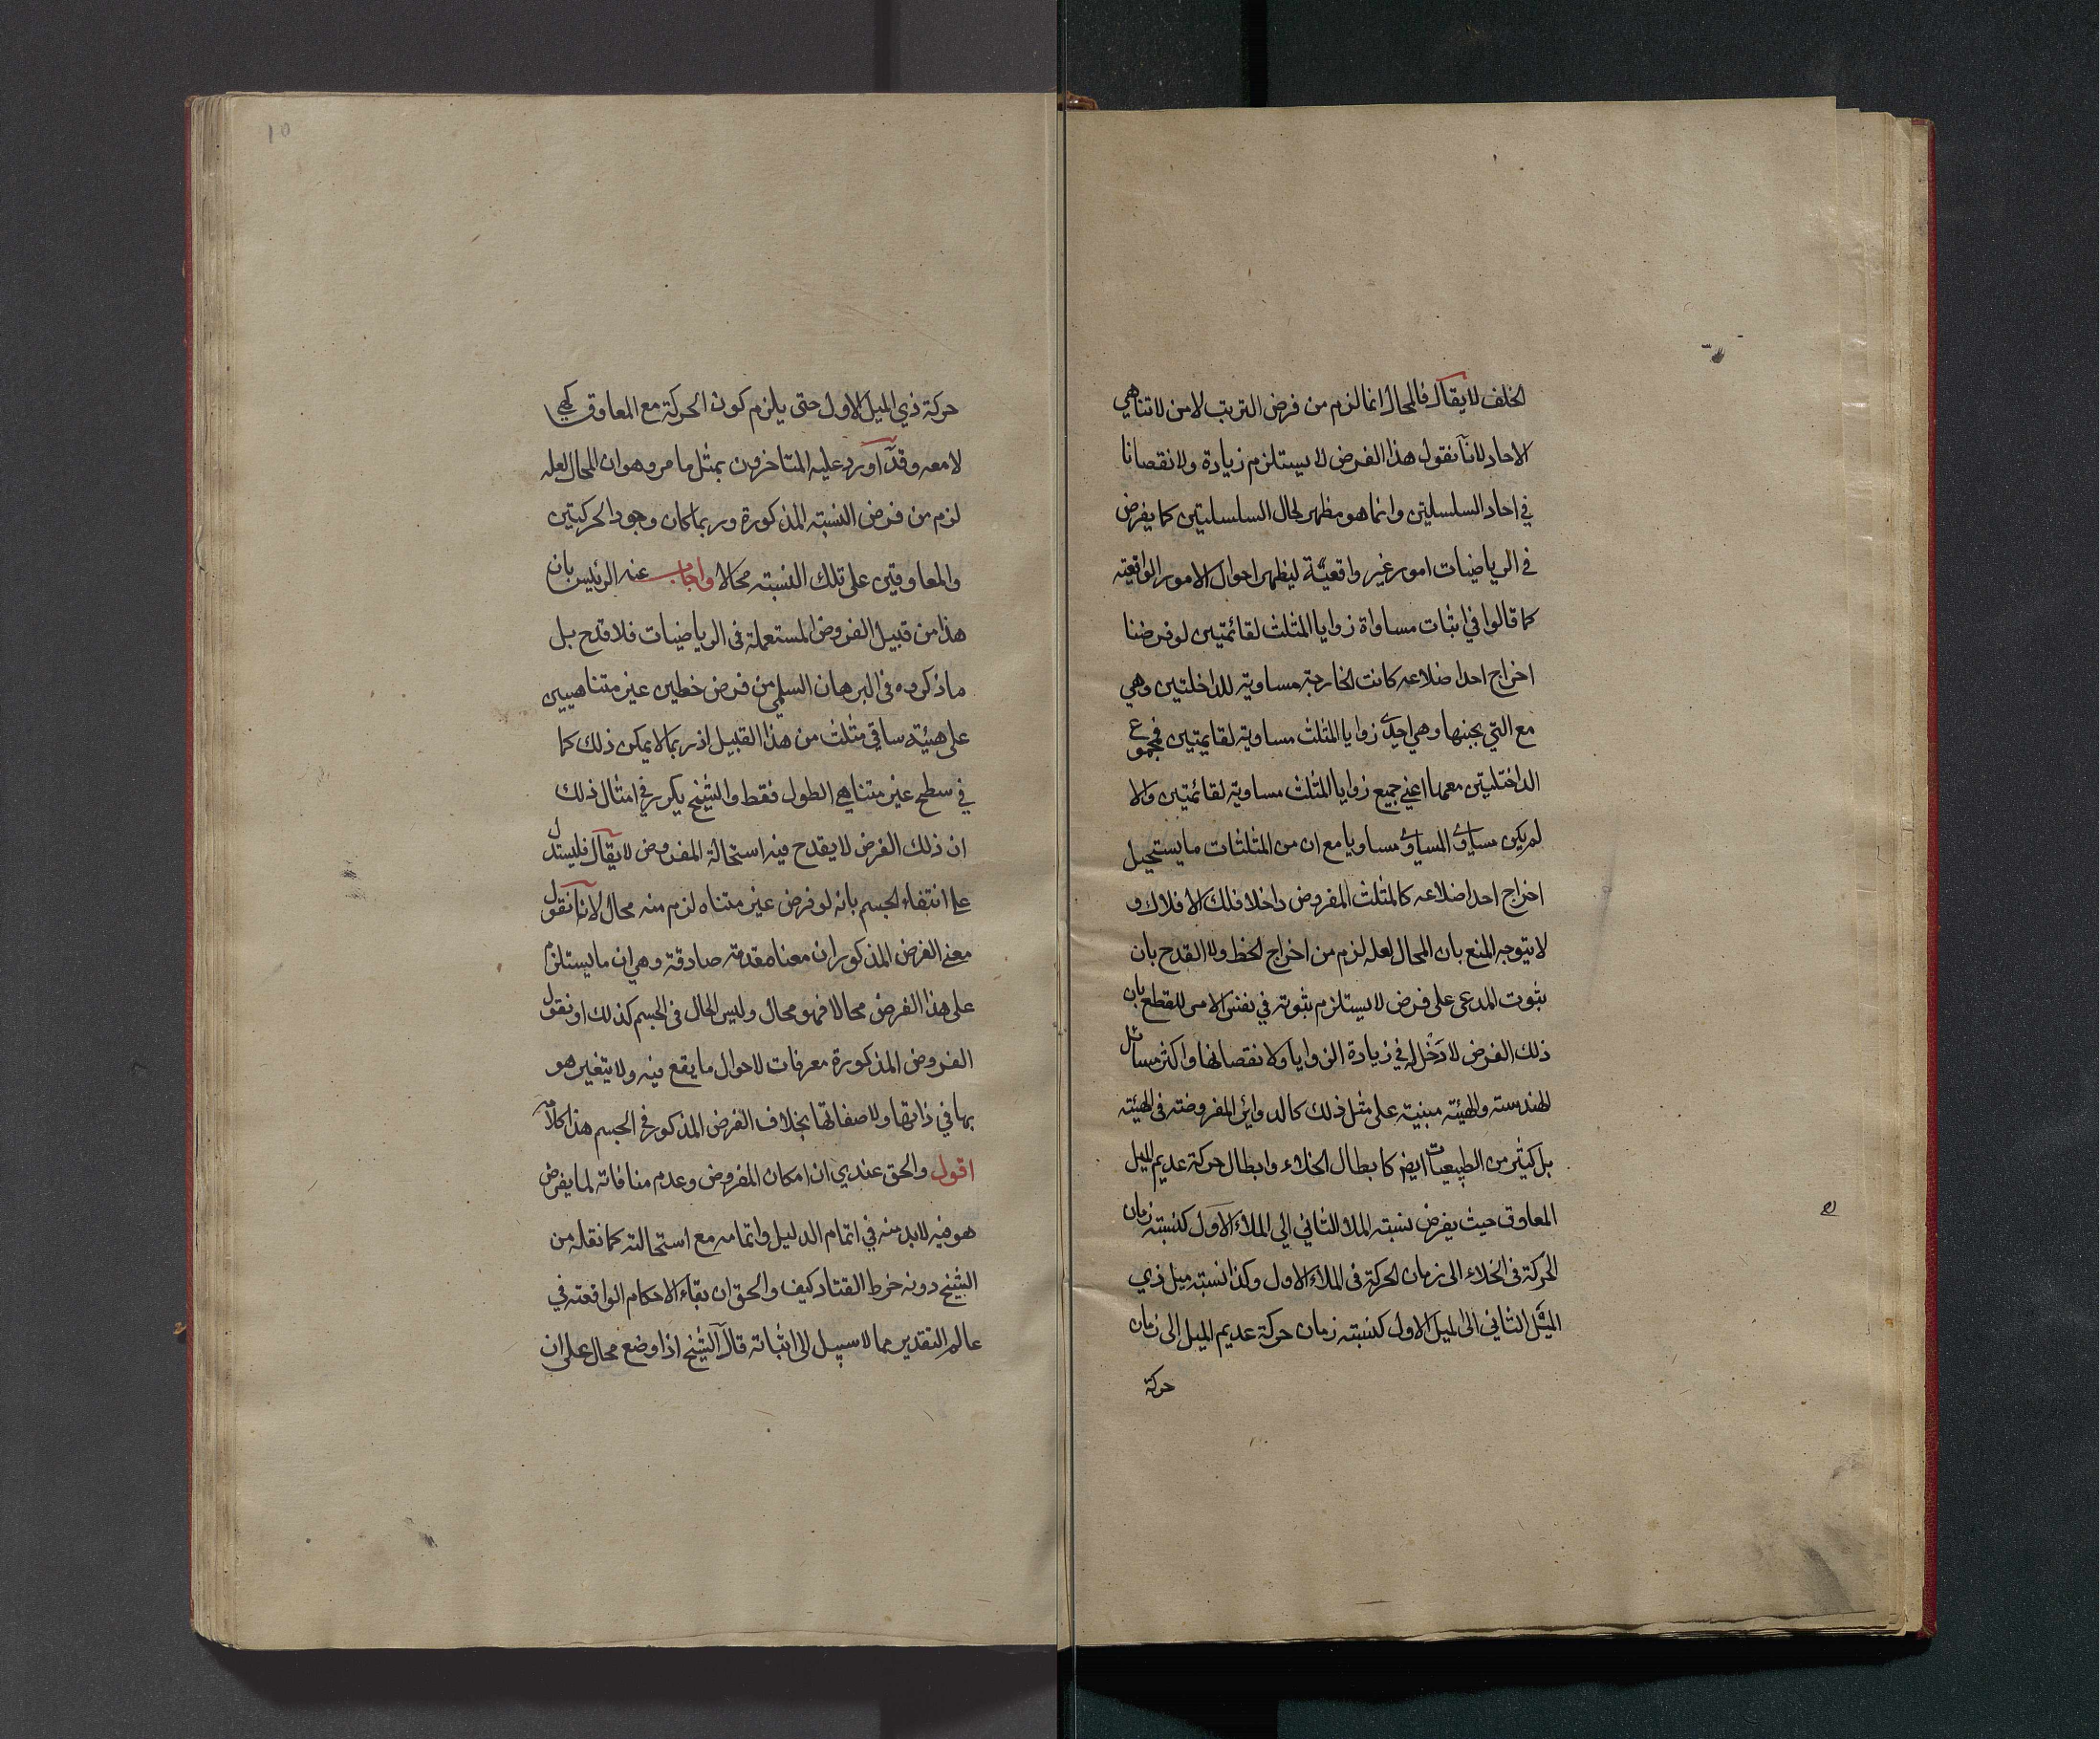 الخلف لا يقال فالمحال انما لزم من فرض الترتب لا من لا تناهي
الاحاد لانا نقول هذا الفرض لا يستلزم زيادة ولا نقصانا
في احاد السلسلتين وانما هو مظهر لحال السلسلتين كما يفرض
في الرياضيات امور غير واقعيّة ليظهر احوال الامور الواقعية
كما قالوا في اثبات مساواة زوايا المثلث لقائمتين لو فرضنا
اخراج احد اضلاعه كانت الخارجة مساوية للداخلتين وهي
مع التي بجنبها وهي احدى زوايا المثلث مساوية لقايمتين فمجموع
الداخلتين معها اعني جميع زوايا المثلث مساوية لقائمتين والا
لم يكن مساوي المساوي مساويا مع ان من المثلثات ما يستحيل
اخراج احد اضلاعه كالمثلث المفروض داخلا فلك الافلاك و
لا يتوجه المنع بان المحال لعله لزم من اخراج الخط ولا القدح بان
ثبوت المدعى على فرض لا يستلزم ثبوته في نفس الامر للقطع بان
ذلك الفرض لا دَخْل له في زيادة الزوايا ولا نقصانها واكثر مسائل
الهندسة والهيئة مبنية على مثل ذلك كالدوائر المفروضة في الهيئة
بل كثير من الطبيعيات ايضا كابطال الخلاء وابطال حركة عديم الميل
المعاوق حيث يفرض نسبة الملأ الثاني الى الملاء الاول كنسبة زمان
الحركة في الخلاء الى زمان الحركة في الملاء الاول وكذا نسبة ميل ذي
الميل الثاني الى الميل الاول كنسبة زمان حركة عديم الميل الى زمان
حركة
10
حركة ذي الميل الاول حتى يلزم كون الحركة مع المعاوق كهي
لا معه وقد اورد عليه المتاخرون بمثل ما مر وهو ان المحال لعله
لزم من فرض النسبة المذكورة وربما كان وجود الحركتين
والمعاوقين على تلك النسبة محالا واجاب عنه الرئيس بان
هذا من قبيل الفروض المستعملة في الرياضيات فلا قدح بل
ما ذكروه في البرهان السلمي من فرض خطين غير متناهيين
على هيئة ساقي مثلث من هذا القبيل اذ ربما لا يمكن ذلك كما
في سطح غير متناهي الطول فقط والشيخ يكرر في امثال ذلك
ان ذلك الفرض لا يقدح فيه استحالة المفروض لا يقال فليستدل
على انتفاء الجسم بانه لو فرض غير متناه لزم منه محال لانا نقول
معنى الفرض المذكور ان معنا مقدمة صادقة وهي ان ما يستلزم
على هذا الفرض محالا فهو محال وليس الحال في الجسم كذلك او نقول
الفروض المذكورة معرفات لاحوال ما يقع فيه ولا يتغير هو
بها في ذاتها ولا صفاتها بخلاف الفرض المذكور في الجسم هذا كلامه
اقول والحق عندي ان امكان المفروض وعدم منافاته لما يفرض
هو فيه لا بد منه في اتمام الدليل واتمامه مع استحالته كما نقله من
الشيخ دونه خرط القتاد كيف والحق ان بقاء الاحكام الواقعة في
عالم التقدير مما لا سبيل الى اثباته قال الشيخ اذا وضع محال على ان